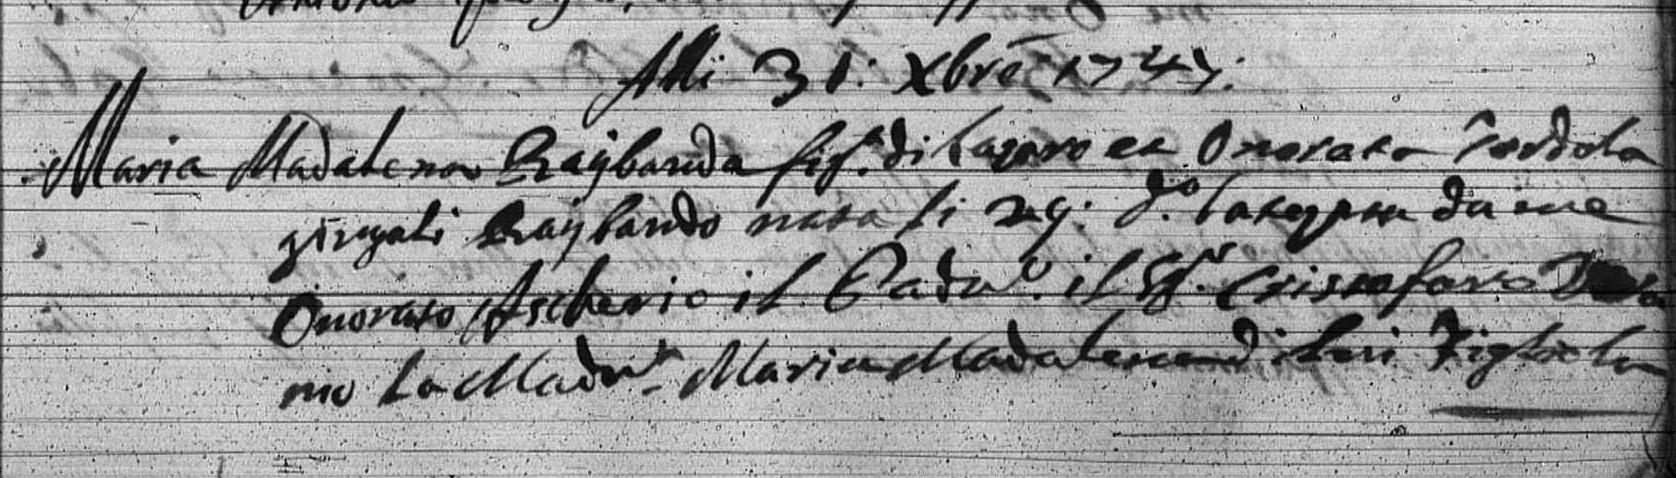 Alli 31: Xbre 1747:
Maria Madalena Raÿbauda fig.ª di Lazaro ea Onorata
giugali Raÿbaudo nata li 29: d.º batezata da me
Onorato Ascherio il Padn.º il Sg.r Cristofaro
mo La Madn.ª Maria Madalena di leri Figliola